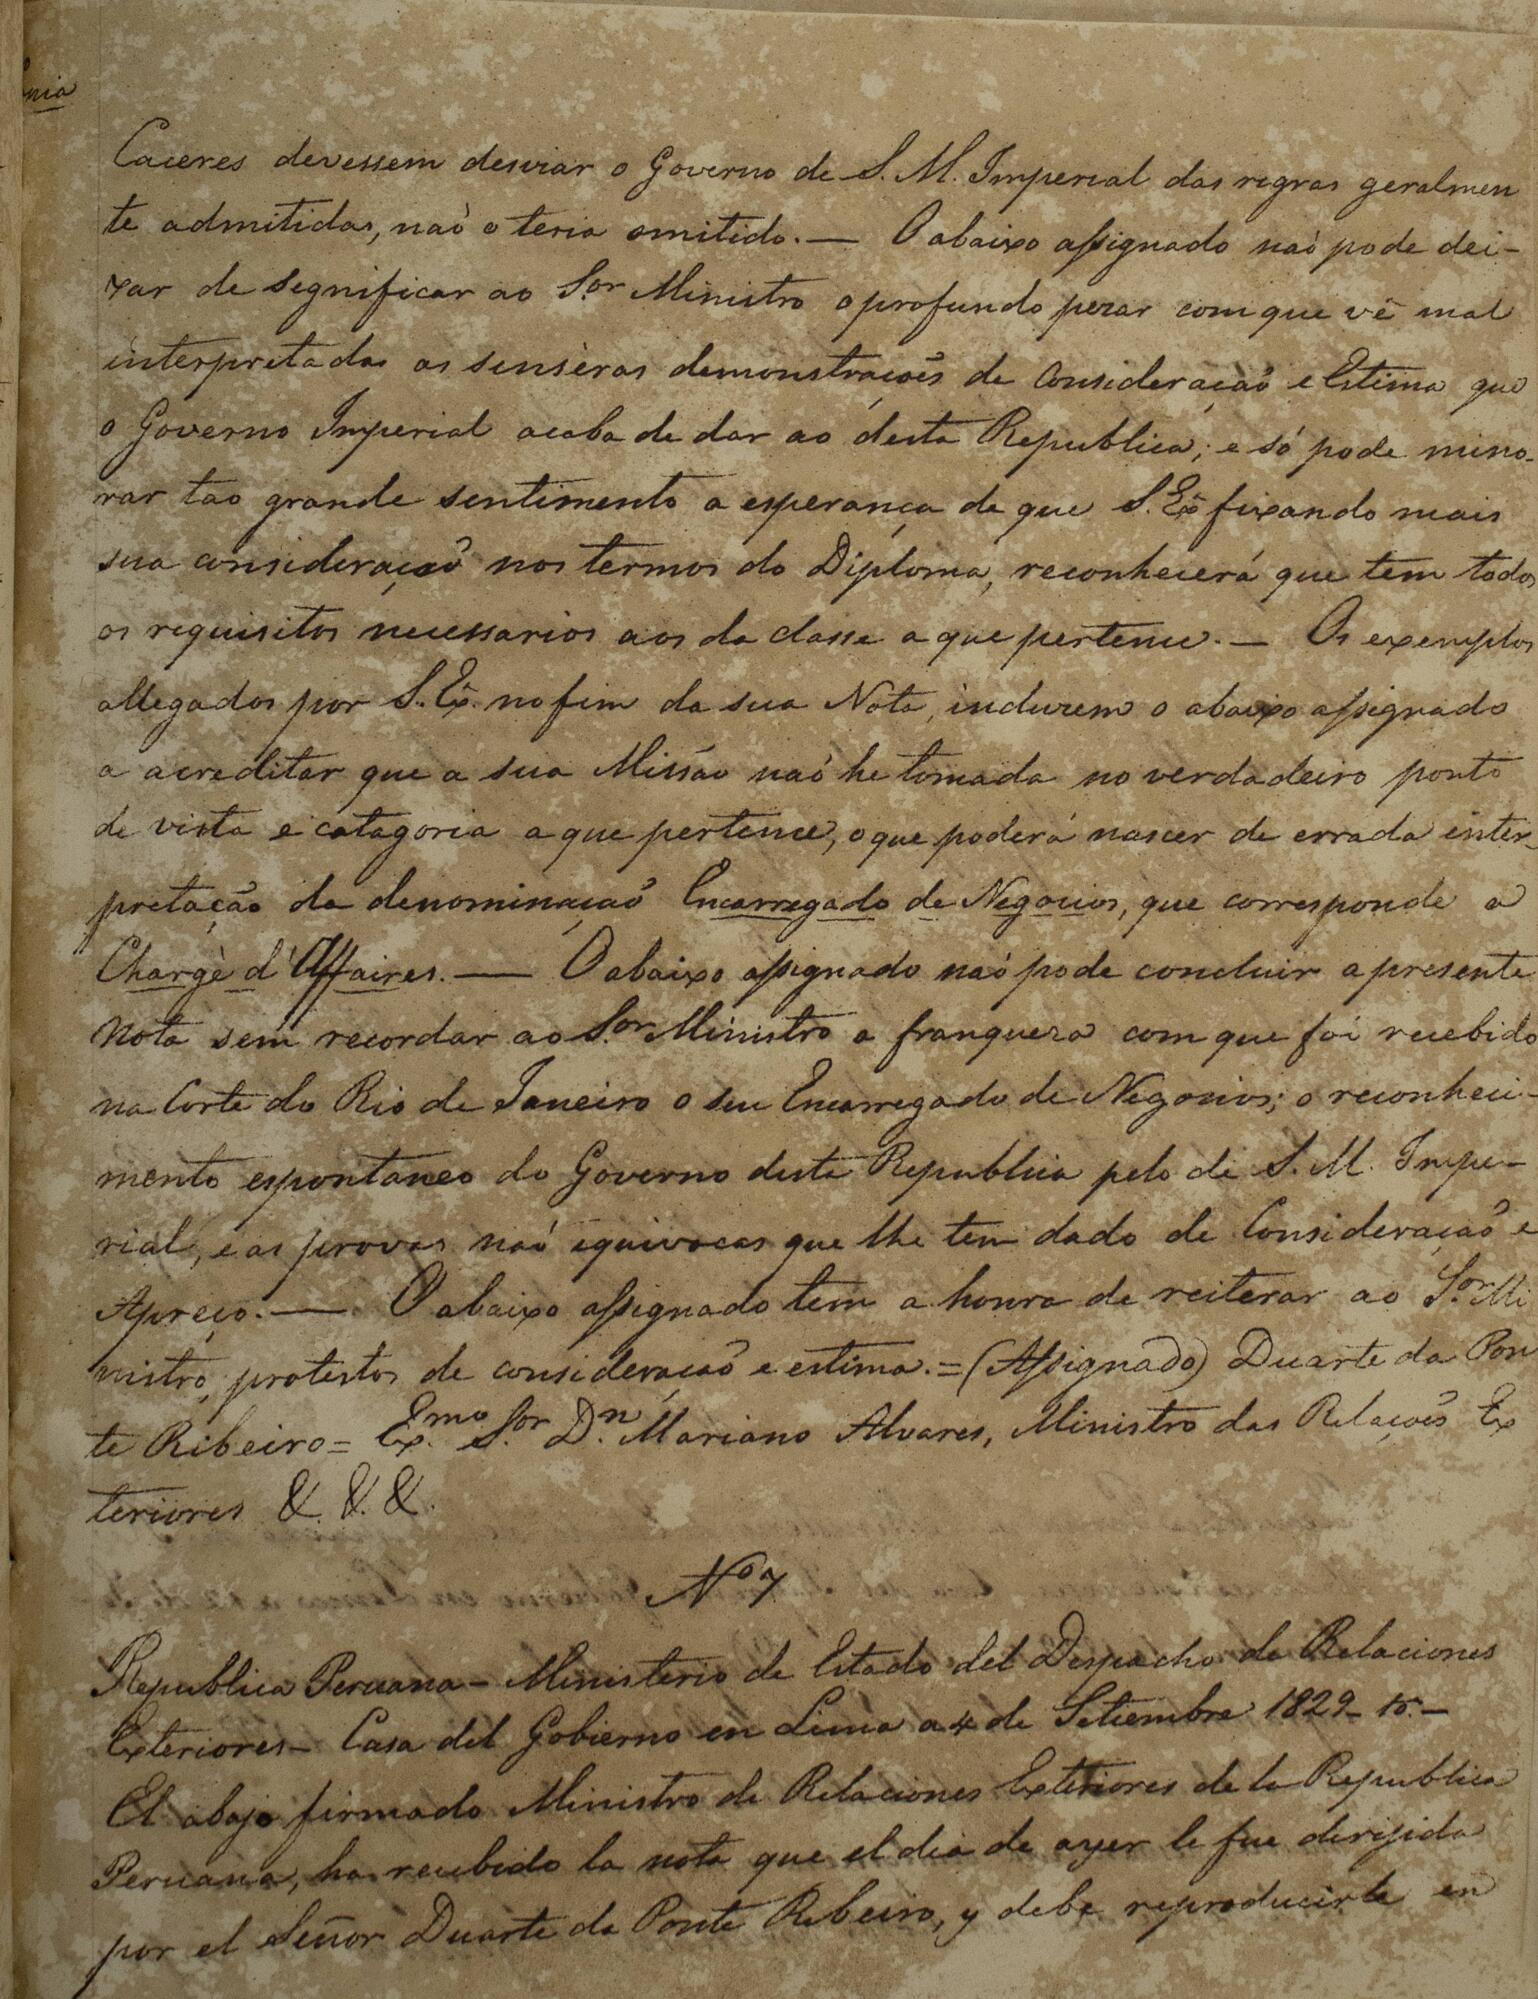 nia
Caceres devessem desviar o Governo de S. M. Imperial das regras geralmen
te admitidas, naõ o teria omitido. — O abaixo assignado naõ pode dei-
xar de significar ao S.or Ministro o profundo pezar com que vê mal
interpretadas as sinsèras demonstraçoẽs de Consideraçaõ e Estima que
o Governo Imperial acaba de dar ao desta Republica; e só pode mino-
rar tao grande sentimento a esperança de que S. Ex.ª fixando mais
sua consideraçaõ nos termos do Diploma, reconhecerá que tem todos
os requisitos necessarios aos da classe a que pertence. — Os exemplos
allegados por S. Ex.ª no fim da sua Nota, induzem o abaixo assignado
a acreditar que a sua Missão naõ he tomada no verdadeiro ponto
de vista e catagoria a que pertence, o que poderá nascer de errada inter-
pretaçaõ da denominaçaõ Encarregado de Negocios, que corresponde a
Chargè d'Affaires. — O abaixo assignado naõ pode concluir a presente
Nota sem recordar ao S.or Ministro a franqueza com que foi recebido
na Corte do Rio de Janeiro o seu Encarregado de Negocios; o reconheci-
mento espontaneo do Governo desta Republica pelo de S. M. Impe-
rial, e as provas naõ equivocas que lhe tem dado de Consideraçaõ e
Apreço. — O abaixo assignado tem a honra de reiterar ao S.or Mi
nistro, protestos de consideraçaõ e estima. = (Assignado) Duarte da Pon
te Ribeiro = Ex.mo S.or D.n Mariano Alvares, Ministro das Relaçoẽs Ex
teriores &. &. &.
Nº 7
Republica Peruana – Ministerio de Estado del Despacho de Relaciones
Exteriores – Casa del Gobierno en Lima a 4 de Setiembre 1829 – 10. –
El abajo firmado Ministro de Relaciones Exteriores de la Republica
Peruana, ha recibido la nota que el dia de ayer le fue dirijida
por el Señor Duarte da Ponte Ribeiro, y debe reproducirle en